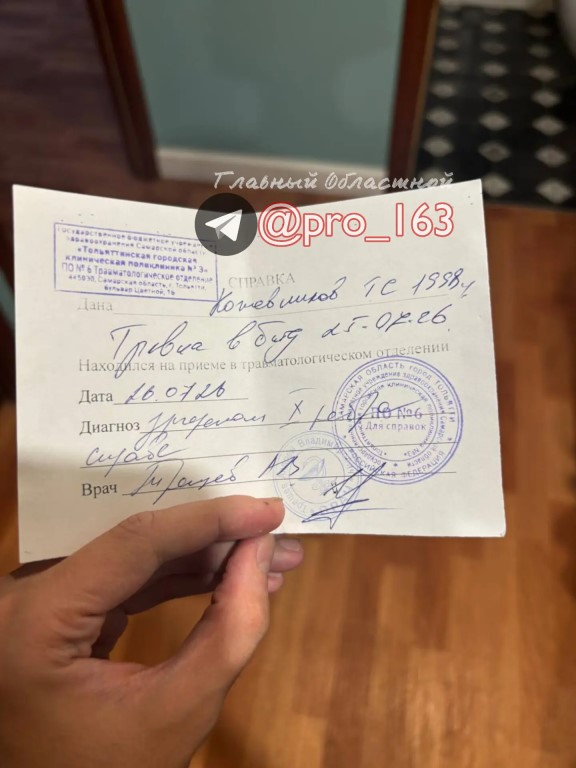 Главный Областной
@pro_163
Государственное бюджетное учреждение
здравоохранения Самарской области
«Тольяттинская городская
клиническая поликлиника №3»
ПО № 6 Травматологическое отделение
445030, Самарская область, г. Тольятти
бульвар Цветной, 16
СПРАВКА
Дана ТС 1998
Травма в быту 25.07.26.
Находился на приеме в травматологическом отделении
Дата 26.07.26
Диагноз X ребра
слева
Врач АВ
САМАРСКАЯ ОБЛАСТЬ ГОРОД ТОЛЬЯТТИ
РОССИЙСКАЯ ФЕДЕРАЦИЯ
ПО №6
Для справок